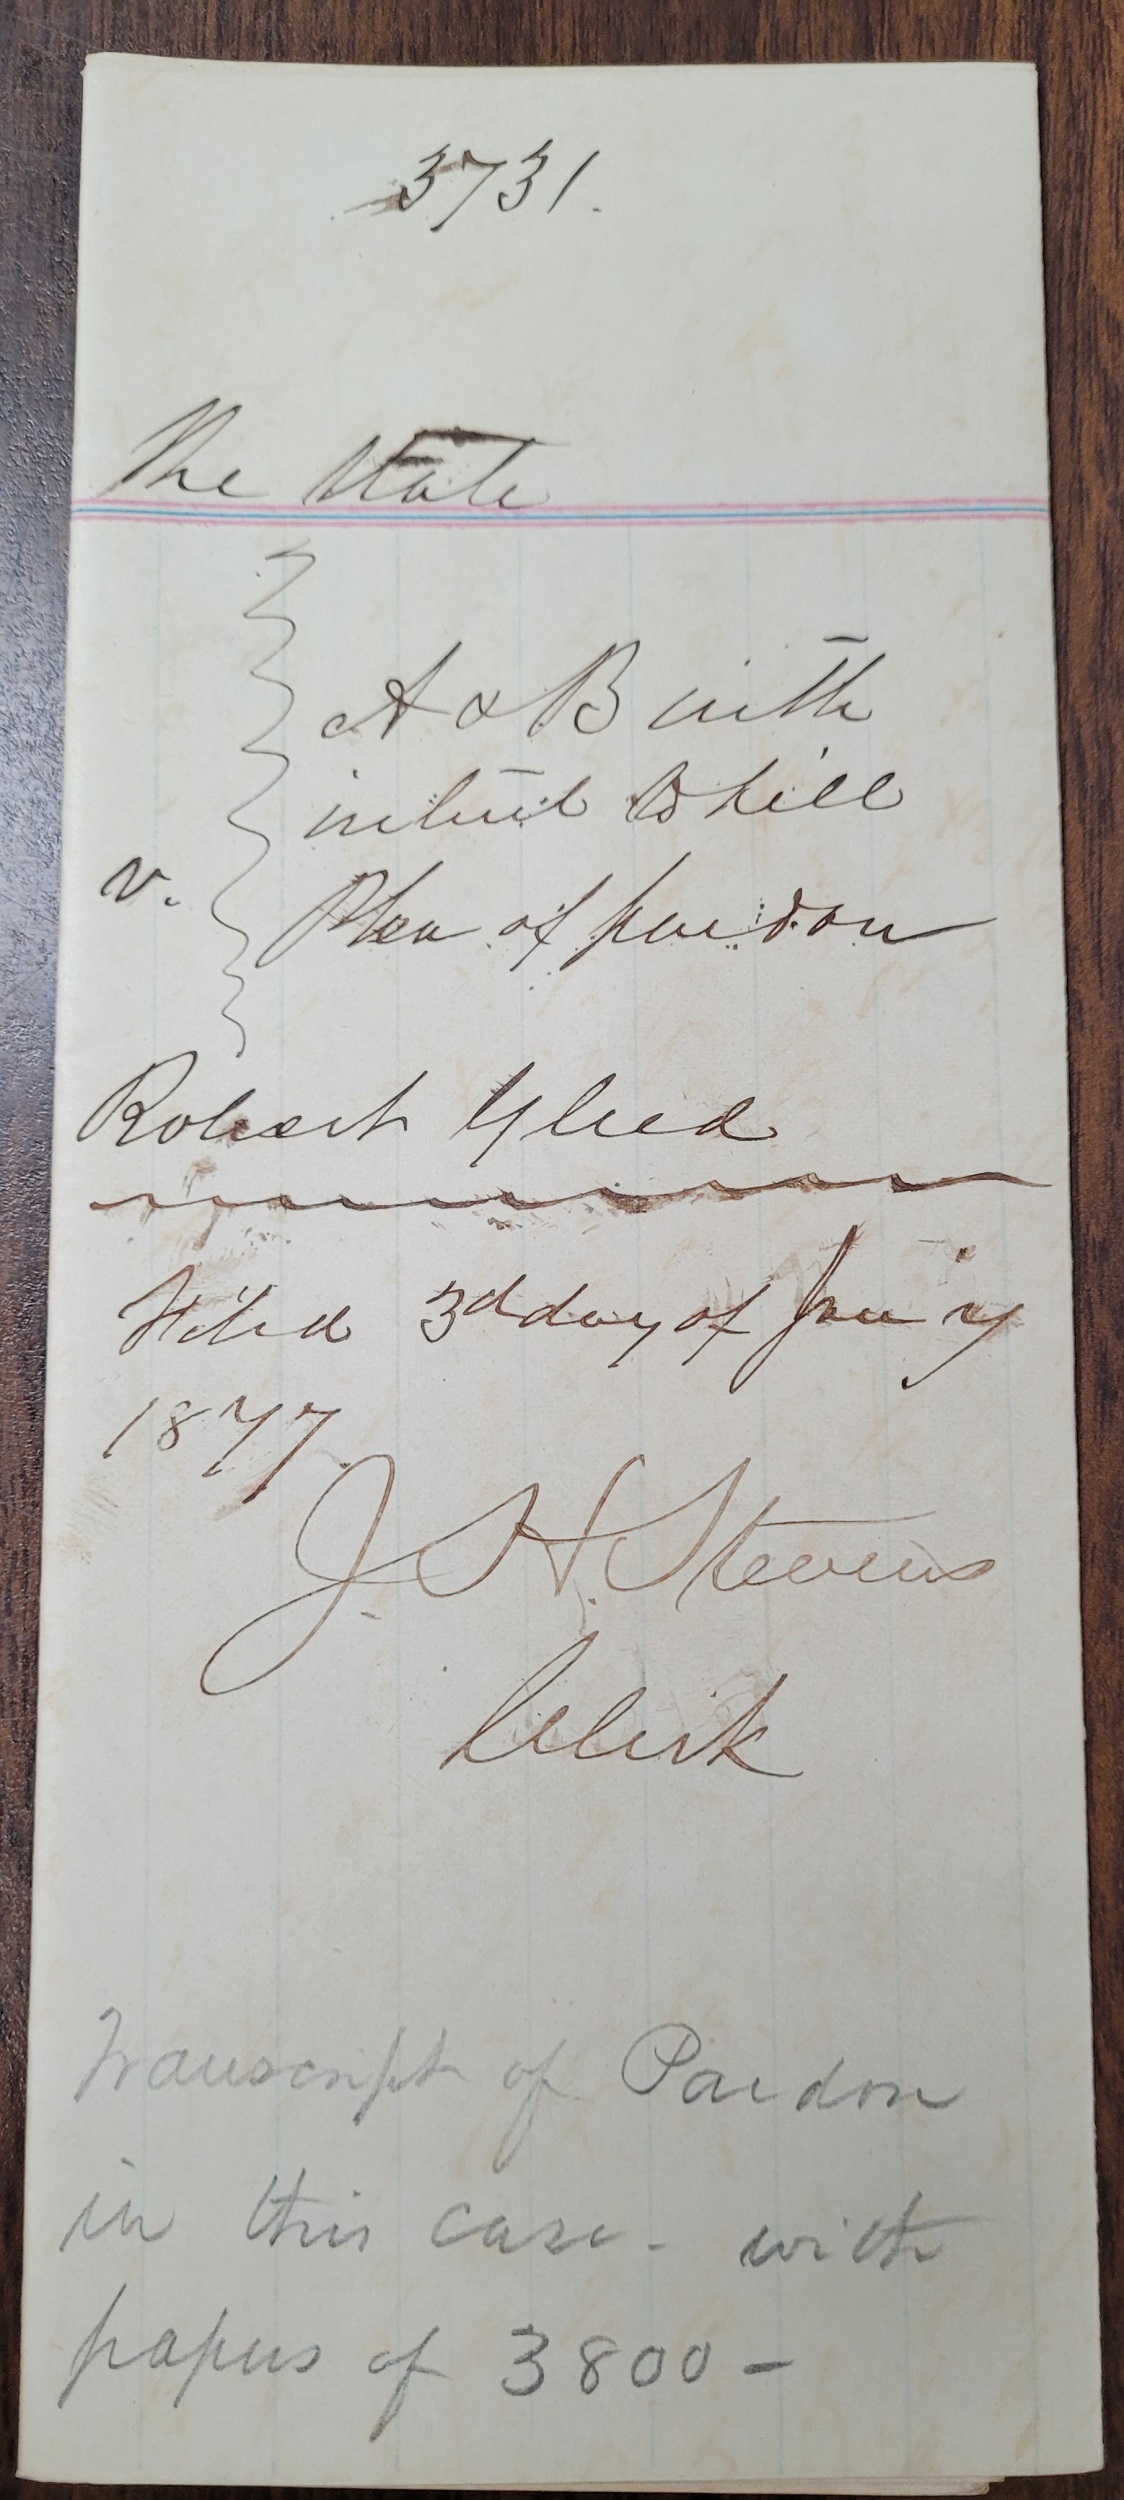 3731.
The State
A & B with
intent to kill
v.
Plea of pardon
Robert Gleed
Filed 3d day of Jany
1877.
J. H. Stevens
Clerk
Transcript of Pardon
in this case - with
papers of 3800 -